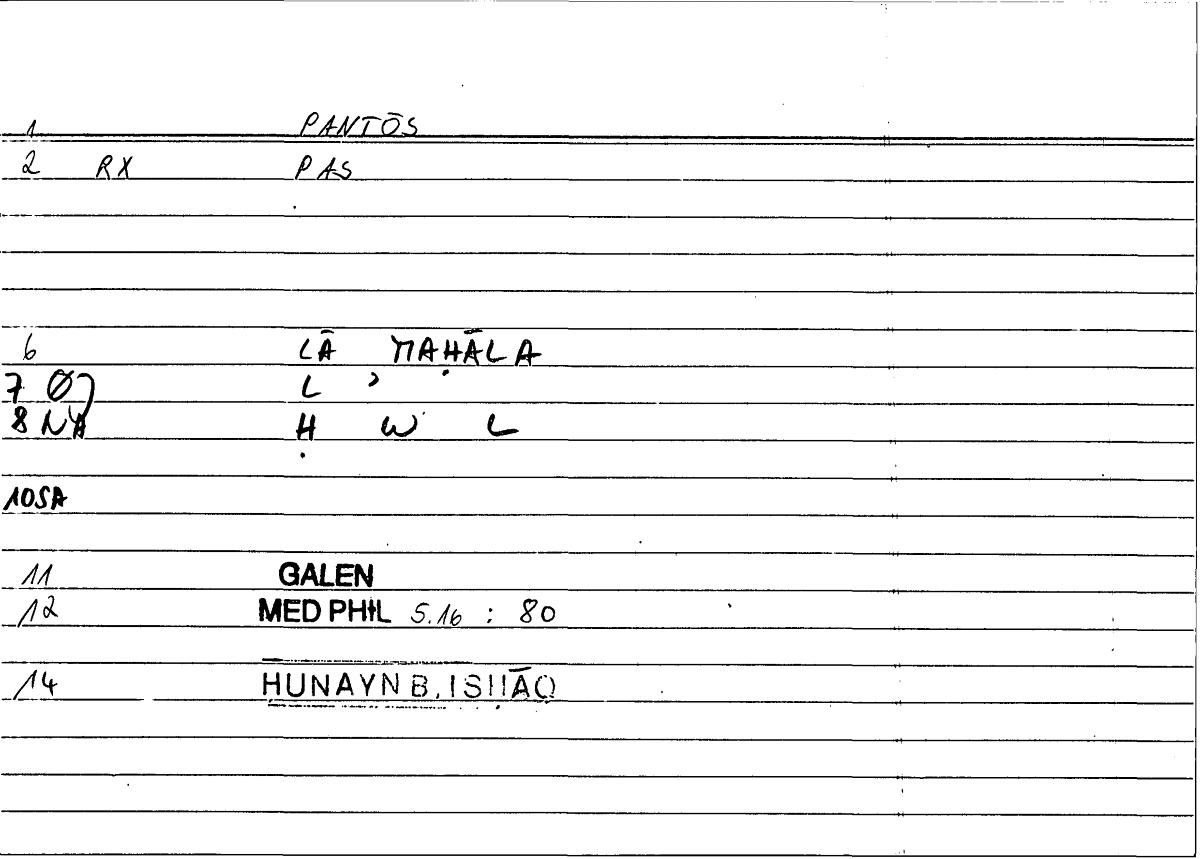 1 PANTŌS
2 RX PAS
6 LĀ MAḤĀLA
7 Ø L ʾ
8 NA Ḥ W L
10 SA
11 GALEN
12 MED PHIL 5.16 : 80
14 ḤUNAYN B. ISḤĀQ